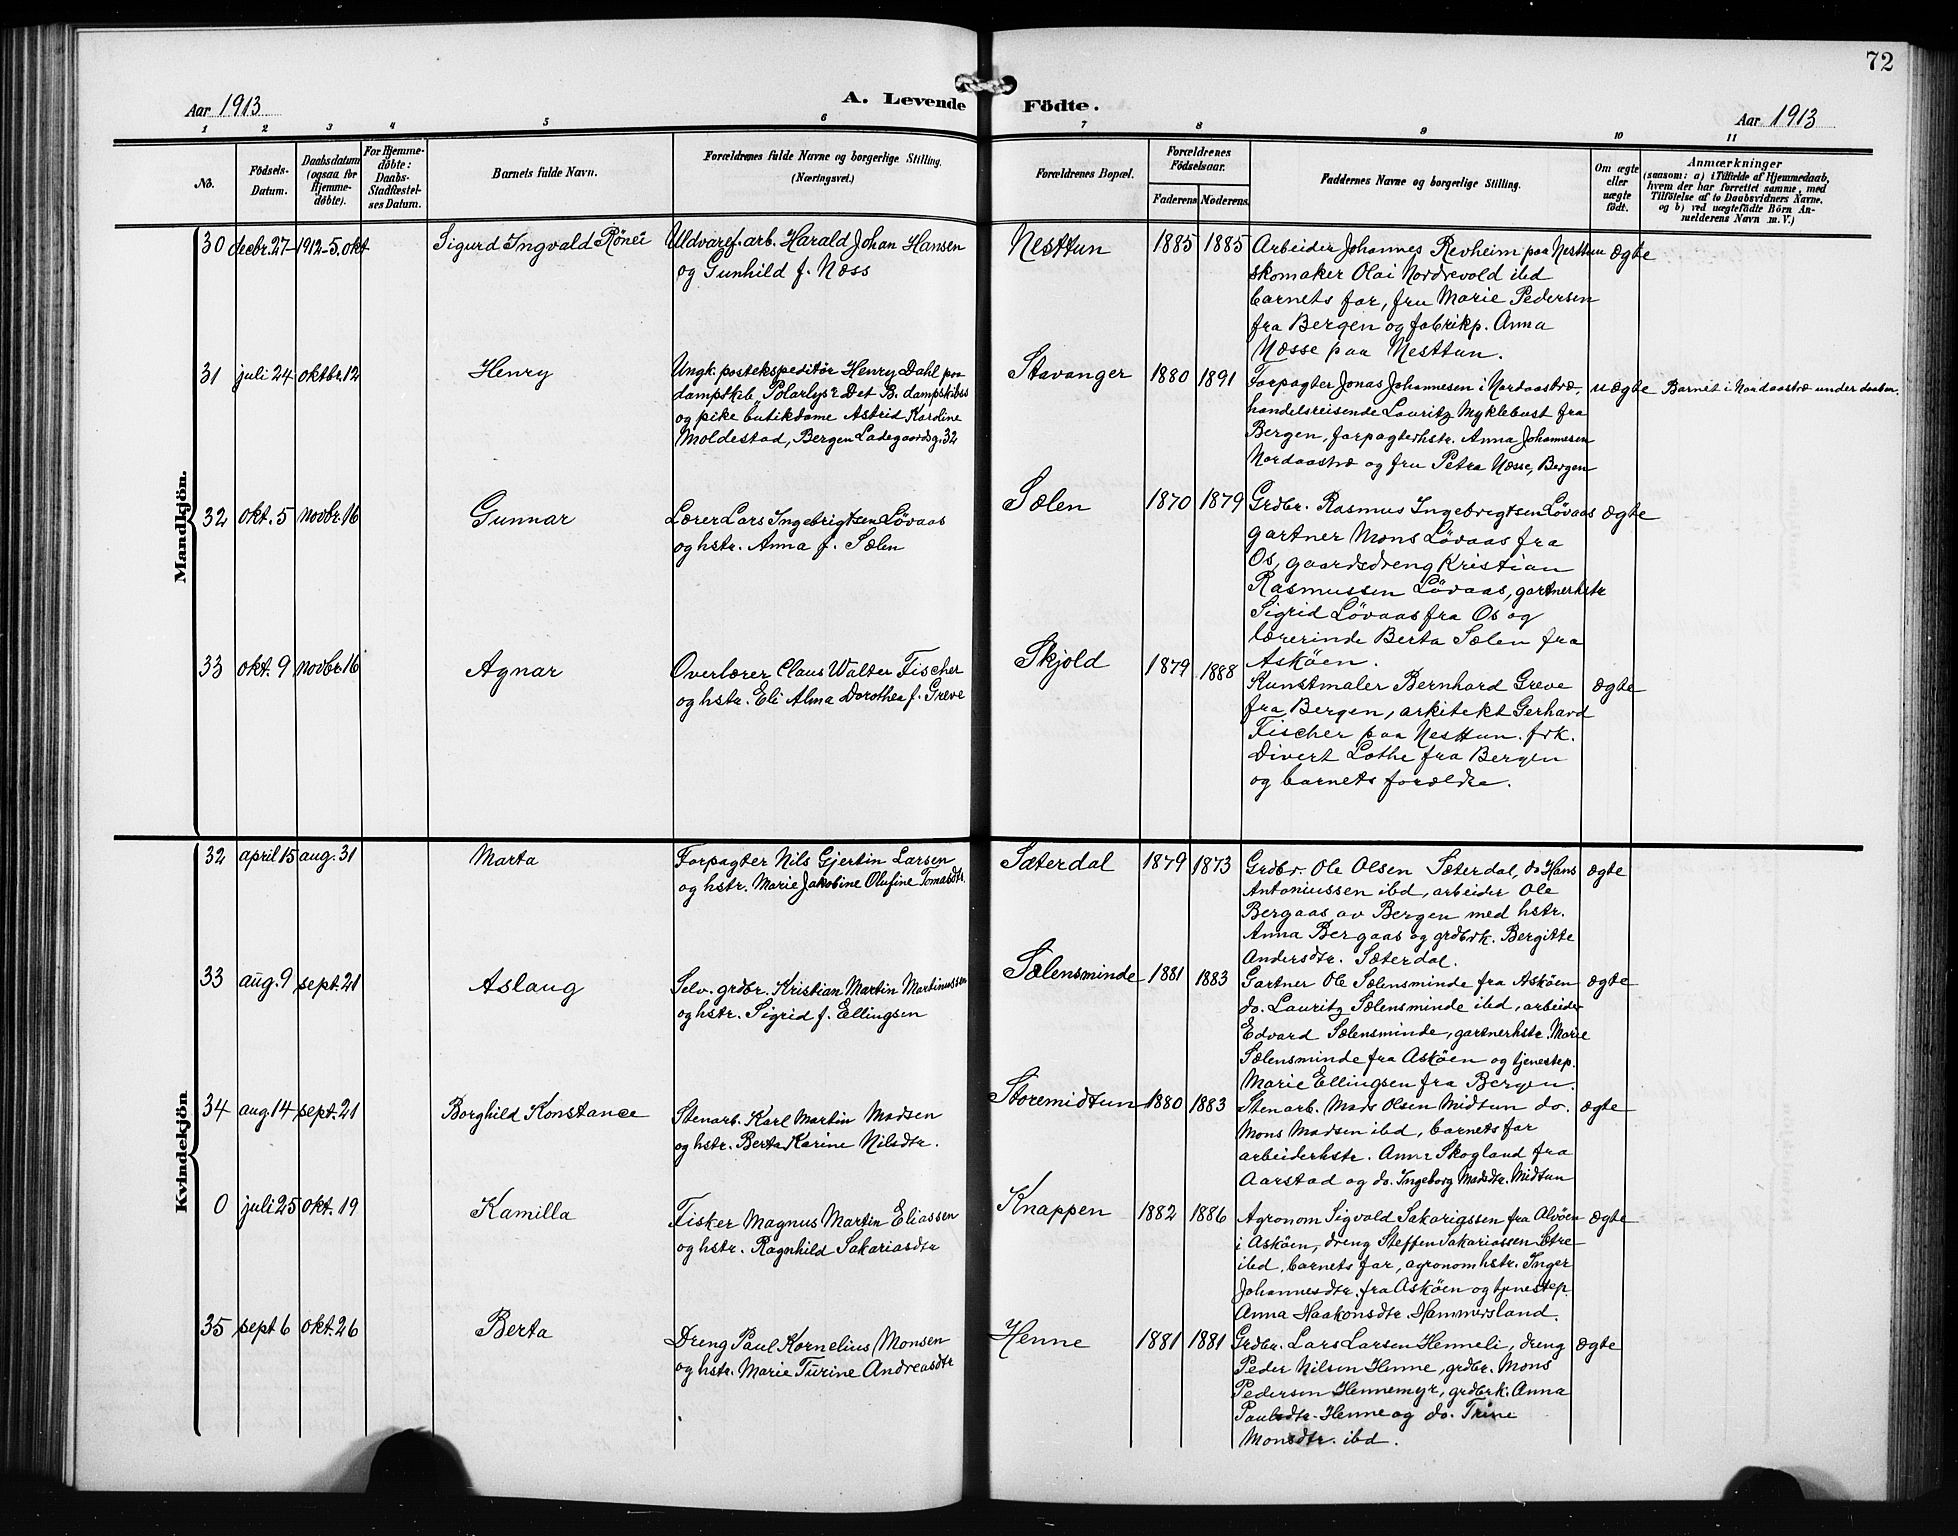 72
Aar 1913
A. Levende Födte.
Aar 1913
1 2 3 4 5 6 7 8 9 10 11
No.
Födsels-
Datum.
Daabsdatum
(ogsaa for
Hjemme-
döbte).
For Hjemme-
döbte:
Daabs-
Stadfæstel-
ses Datum.
Barnets fulde Navn.
Forældrenes fulde Navne og borgerlige Stilling.
(Næringsvei.)
Forældrenes Bopæl.
Forældrenes
Födselsaar.
Faderens
Moderens
Faddernes Navne og borgerlige Stilling.
Om ægte
eller
uægte
födt.
Anmærkninger
(saasom: a) i Tilfælde af Hjemmedaab,
hvem der har forrettet samme, med
Tilföielse af to Daabsvidners Navne.
og b) ved uægtefödte Börn An-
melderens Navn m. V.)
Mandkjön.
30 decbr. 27-1912-5. okt Sigurd Ingvald Rönei
Uldvaref. arb. Harald Johan Hansen
og Gunhild f. Næss
Nesttun 1885 1885
Arbeider Johannes Revheim paa Nesttun
skomaker Olai Nordrevold ibd
barnets far, fru Marie Pedersen
fra Bergen og fabrikp. Anna
Næsse paa Nesttun.
ægte
31 juli 24 oktbr. 12 Henry
Ungk. postekspeditör Henry Dahl paa
dampskib Polarlys Det B. dampskibss
og pike butikdame Astrid Karoline
Moldestad, Bergen Ladegaardsg. 32
Stavanger 1880 1891
Forpagter Jonas Johannesen i Nordaastræ,
handelsreisende Lauritz Myklebust fra
Bergen, forpagterhstr. Anna Johannesen
Nordaastræ og fru Petra Næsse, Bergen
uægte
Barnet i Nordaastræ under daaben.
32 okt. 5 novbr. 16 Gunnar
Lærer Lars Ingebrigtsen Lövaas
og hstr. Anna f. Sælen
Sælen 1870 1879
Grdbr. Rasmus Ingebrigtsen Lövaas
gartner Mons Lövaas fra
Os, gaardsdreng Kristian
Rasmussen Lövaas, gartnerhstr
Sigrid Lövaas fra Os og
lærerinde Berta Sælen fra
Asköen.
ægte
33 okt. 9 novbr. 16 Agnar
Overlærer Claus Walter Fischer
og hstr. Eli Alma Dorothea f. Greve
Skjold 1879 1888
Kunstmaler Bernhard Greve
fra Bergen, arkitekt Gerhard
Fischer paa Nesttun. frk.
Divert Lothe fra Bergen
og barnets forældre.
ægte
Kvindekjön
32 april 15 aug. 31 Marta
Forpagter Nils Gjertin Larsen
og hstr. Marie Jakobine Olufine Tomasdtr.
Sæterdal 1879 1873
Grdbr. Ole Olsen Sæterdal, do Hans
Antoniussen ibd, arbeider Ole
Bergaas av Bergen med hstr.
Anna Bergaas og grdbrk. Bergitte
Andersdtr. Sæterdal.
ægte
33 aug. 9 sept. 21 Aslaug
Selv. grdbr. Kristian Martin Martinussen
og hstr. Sigrid f. Ellingsen
Sælensminde 1881 1883
Gartner Ole Sælensminde fra Asköen
do. Lauritz Sælensminde ibd, arbeider
Edvard Sælensminde, gartnerhstr. Marie
Sælensminde fra Asköen og tjenestep.
Marie Ellingsen fra Bergen.
ægte
34 aug. 14 sept. 21 Borghild Konstance
Stenarb. Karl Martin Madsen
og hstr. Berta Karine Nilsdtr.
Storemidtun 1880 1883
Stenarb. Mads Olsen Midtun do.
Mons Madsen ibd, barnets far
arbeiderhstr. Anna Skogland fra
Aarstad og do. Ingeborg Madsdtr. Midtun
ægte
0 juli 25 okt. 19 Kamilla
Fisker Magnus Martin Eliassen
og hstr. Ragnhild Sakariasdtr
Knappen 1882 1886
Agronom Sigvald Sakariassen fra Alvöen
i Asköen, dreng Steffen Sakariassen Sætre
ibd. barnets far, agronomhstr. Inger
Johannesdtr. fra Asköen og tjenestep.
Anna Haakonsdtr. Hammersland.
ægte
35 sept. 6 okt. 26 Berta
Dreng Paul Kornelius Monsen
og hstr. Marie Turine Andreasdtr
Henne 1881 1881
Grdbr. Lars Larsen Henneli, dreng
Peder Nilsen Henne, grdbr. Mons
Pedersen Hennemyr, grdbrk. Anna
Paulsdtr. Henne og do. Trine
Monsdtr. ibd.
ægte